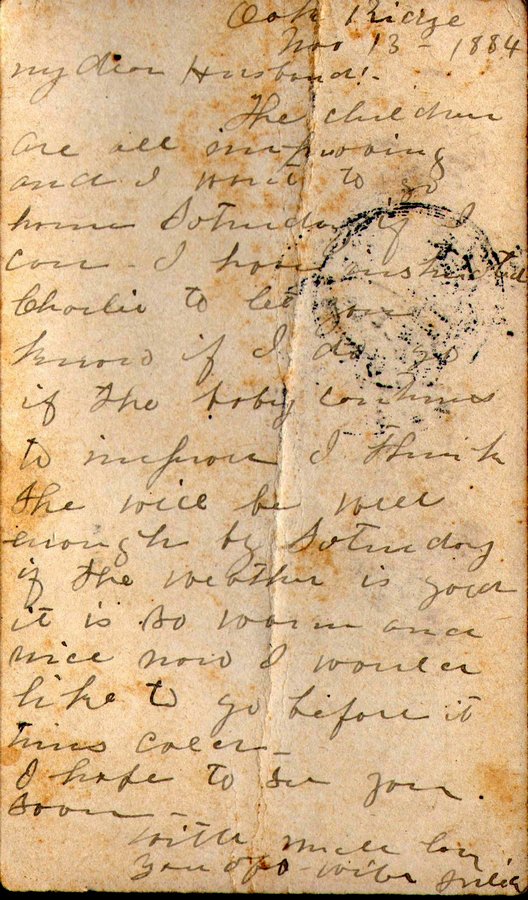 Oak Ridge
Nov 13 - 1884
My dear Husband!-
The children
are all improving
and I want to go
home Saturday if I
can - I have instructed
Charlie to let you
know if I do go
if the baby continues
to improve I think
she will be well
enough by Saturday
if the weather is good
it is so warm and
nice now I would
like to go before it
turns cold -
I hope to see you
soon -
with much love
your wife Julia